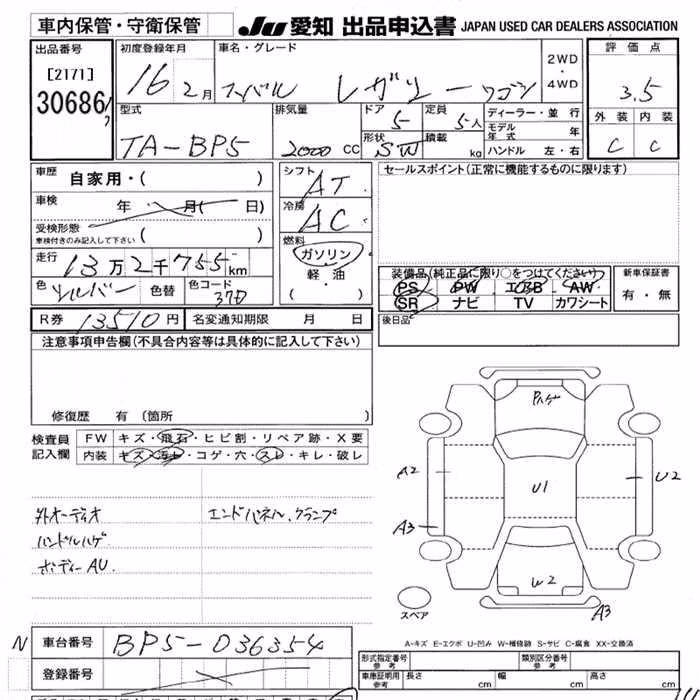 車内保管・守衛保管
JU 愛知 出品申込書 JAPAN USED CAR DEALERS ASSOCIATION
出品番号
[2171]
30686
初度登録年月
16 2月
車名・グレード
スバル レガシー ワゴン
2WD
・
4WD
評価点
3.5
外装 内装
C C
型式
TA-BP5
排気量
2000 CC
ドア
5
形状
SW
定員
5人
積載
kg
ディーラー・並行
モデル年式 年
ハンドル 左・右
車歴
自家用・( )
車検
年 月( 日)
受検形態
車検付きのみ記入して下さい ( )
シフト
AT
冷房
AC
燃料
ガソリン
軽油
( ・ )
セールスポイント(正常に機能するものに限ります)
走行
13万2千755km
色 シルバー 色替 色コード
37D
装備品(純正品に限り○をつけてください)
PS PW エアB AW
SR ナビ TV カワシート
新車保証書
有・無
R券 13510円 名変通知期限 月 日
後日品
注意事項申告欄(不具合内容等は具体的に記入して下さい)
修復歴 有 (箇所
検査員
記入欄
FW キズ・飛石・ヒビ割・リペア跡・X要
内装 キズ・汚レ・コゲ・穴・スレ・キレ・破レ
外オーディオ
ハンドルハゲ
ボディーAU.
エンドパネル、クランプ
A2
A3
U1
U2
W2
A3
スペア
A-キズ E-エクボ U-凹み W-補修跡 S-サビ C-腐食 XX-交換済
N 車台番号 BP5-036354
登録番号
形式指定番号
参考
類別区分番号
参考
車庫証明用
参考
長さ cm 幅 cm 高さ cm